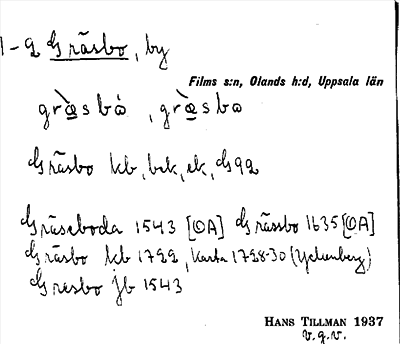 1-2 Gräsbo, by
Films s:n, Olands h:d, Uppsala län
græ̀sbó, græ̀sbo
Gräsbo kb, bek, ek, G92
Gräseboda 1543 [OA] Grässbo 1635 [OA]
Gräsbo kb 1722, Karta 1728-30 (Yckenberg)
Gresbo jb 1543
HANS TILLMAN 1937
v.g.v.